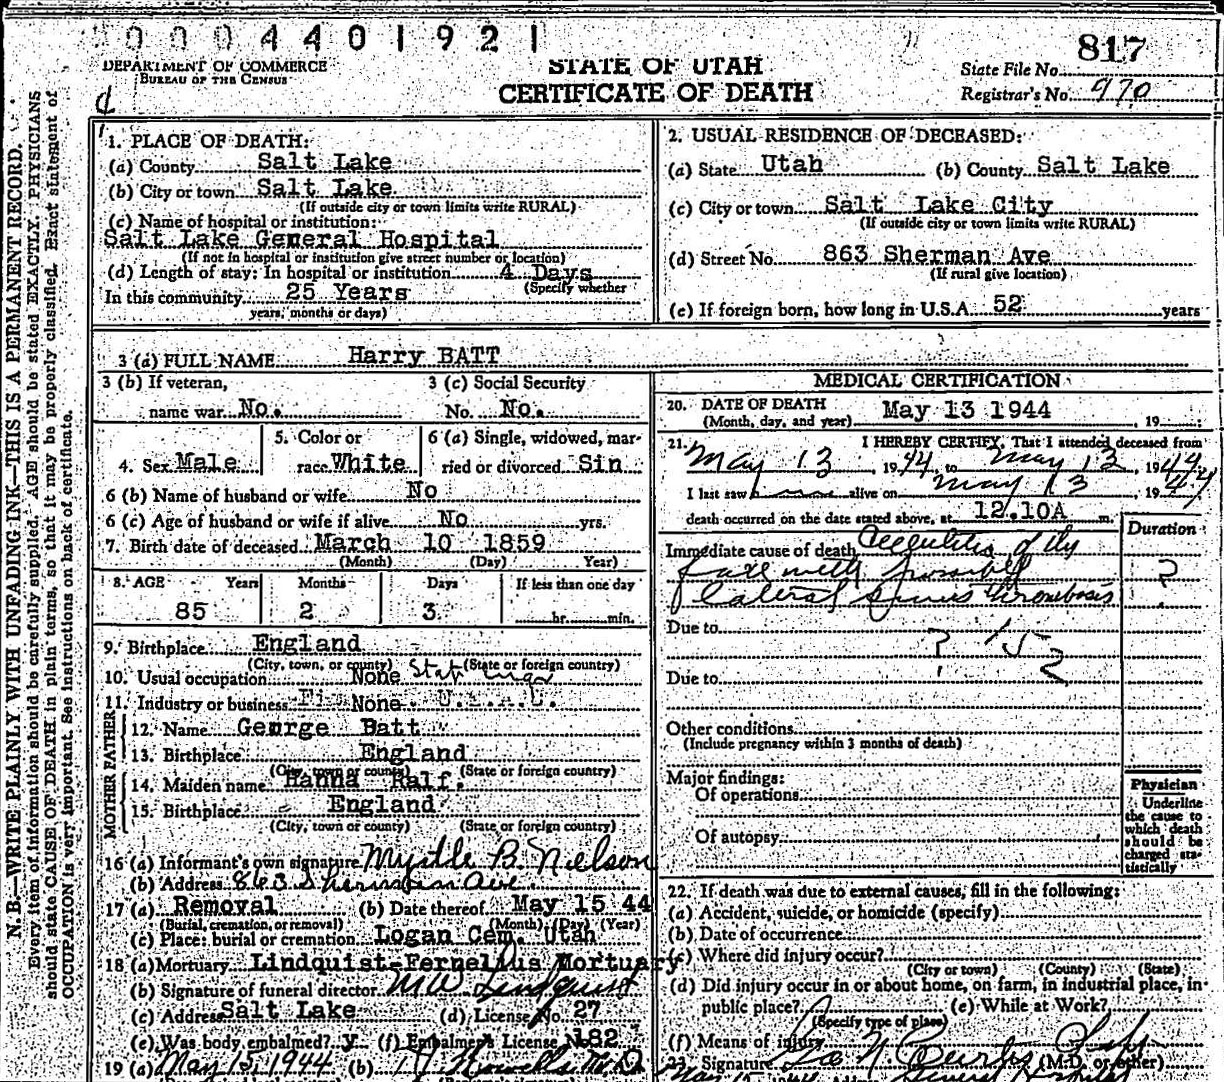 0004401921
817
DEPARTMENT OF COMMERCE
BUREAU OF THE CENSUS
STATE OF UTAH
CERTIFICATE OF DEATH
State File No.
Registrar's No. 970
N. B.—WRITE PLAINLY WITH UNFADING INK—THIS IS A PERMANENT RECORD.
Every item of information should be carefully supplied. AGE should be stated EXACTLY. PHYSICIANS
should state CAUSE OF DEATH in plain terms, so that it may be properly classified. Exact statement of
OCCUPATION is very important. See instructions on back of certificate.
1. PLACE OF DEATH:
(a) County Salt Lake
(b) City or town Salt Lake
(If outside city or town limits write RURAL)
(c) Name of hospital or institution:
Salt Lake General Hospital
(If not in hospital or institution give street number or location)
(d) Length of stay: In hospital or institution 4 Days
(Specify whether
In this community 25 Years
years, months or days)
2. USUAL RESIDENCE OF DECEASED:
(a) State Utah (b) County Salt Lake
(c) City or town Salt Lake City
(If outside city or town limits write RURAL)
(d) Street No. 863 Sherman Ave
(If rural give location)
(e) If foreign born, how long in U.S.A. 52 years
3 (a) FULL NAME Harry BATT
3 (b) If veteran, 3 (c) Social Security
name war No. No. No.
4. Sex Male
5. Color or
race White
6 (a) Single, widowed, mar-
ried or divorced Sin
6 (b) Name of husband or wife No
6 (c) Age of husband or wife if alive No yrs.
7. Birth date of deceased March 10 1859
(Month) (Day) Year)
8. AGE Years Months Days If less than one day
85 2 3 hr. min.
9. Birthplace England
(City, town, or county) (State or foreign country)
10. Usual occupation None
11. Industry or business None
FATHER
12. Name George Batt
13. Birthplace England
(City, town or county) (State or foreign country)
MOTHER
14. Maiden name Hanna Ralf.
15. Birthplace England
(City, town or county) (State or foreign country)
16 (a) Informant's own signature Myrtle B. Nielson
(b) Address 863 Sherman Ave.
17 (a) Removal (b) Date thereof May 15 44
(Burial, cremation, or removal) (Month) (Day) (Year)
(c) Place: burial or cremation Logan Cem. Utah
18 (a) Mortuary Lindquist-Fernelius Mortuary
(b) Signature of funeral director Lindquist
(c) Address Salt Lake (d) License No. 27
(e) Was body embalmed? y (f) Embalmer's License No. 182
19 (a) May 15, 1944 (b) M.D.
MEDICAL CERTIFICATION
20. DATE OF DEATH May 13 1944
(Month, day, and year) , 19
21. I HEREBY CERTIFY, That I attended deceased from
May 13, 1944, to May 13, 1944,
I last saw h alive on May 13, 1944
death occurred on the date stated above, at 12.10A m.
Duration
Immediate cause of death Cellulitis of the
face with possible ?
lateral sinus thrombosis
Due to
Due to
Other conditions
(Include pregnancy within 3 months of death)
Major findings:
Of operations
Of autopsy
Physician
Underline
the cause to
which death
should be
charged sta-
tistically
22. If death was due to external causes, fill in the following:
(a) Accident, suicide, or homicide (specify)
(b) Date of occurrence
(c) Where did injury occur?
(City or town) (County) (State)
(d) Did injury occur in or about home, on farm, in industrial place, in
public place? (e) While at Work?
(Specify type of place)
(f) Means of injury
23. Signature (M.D. or other)